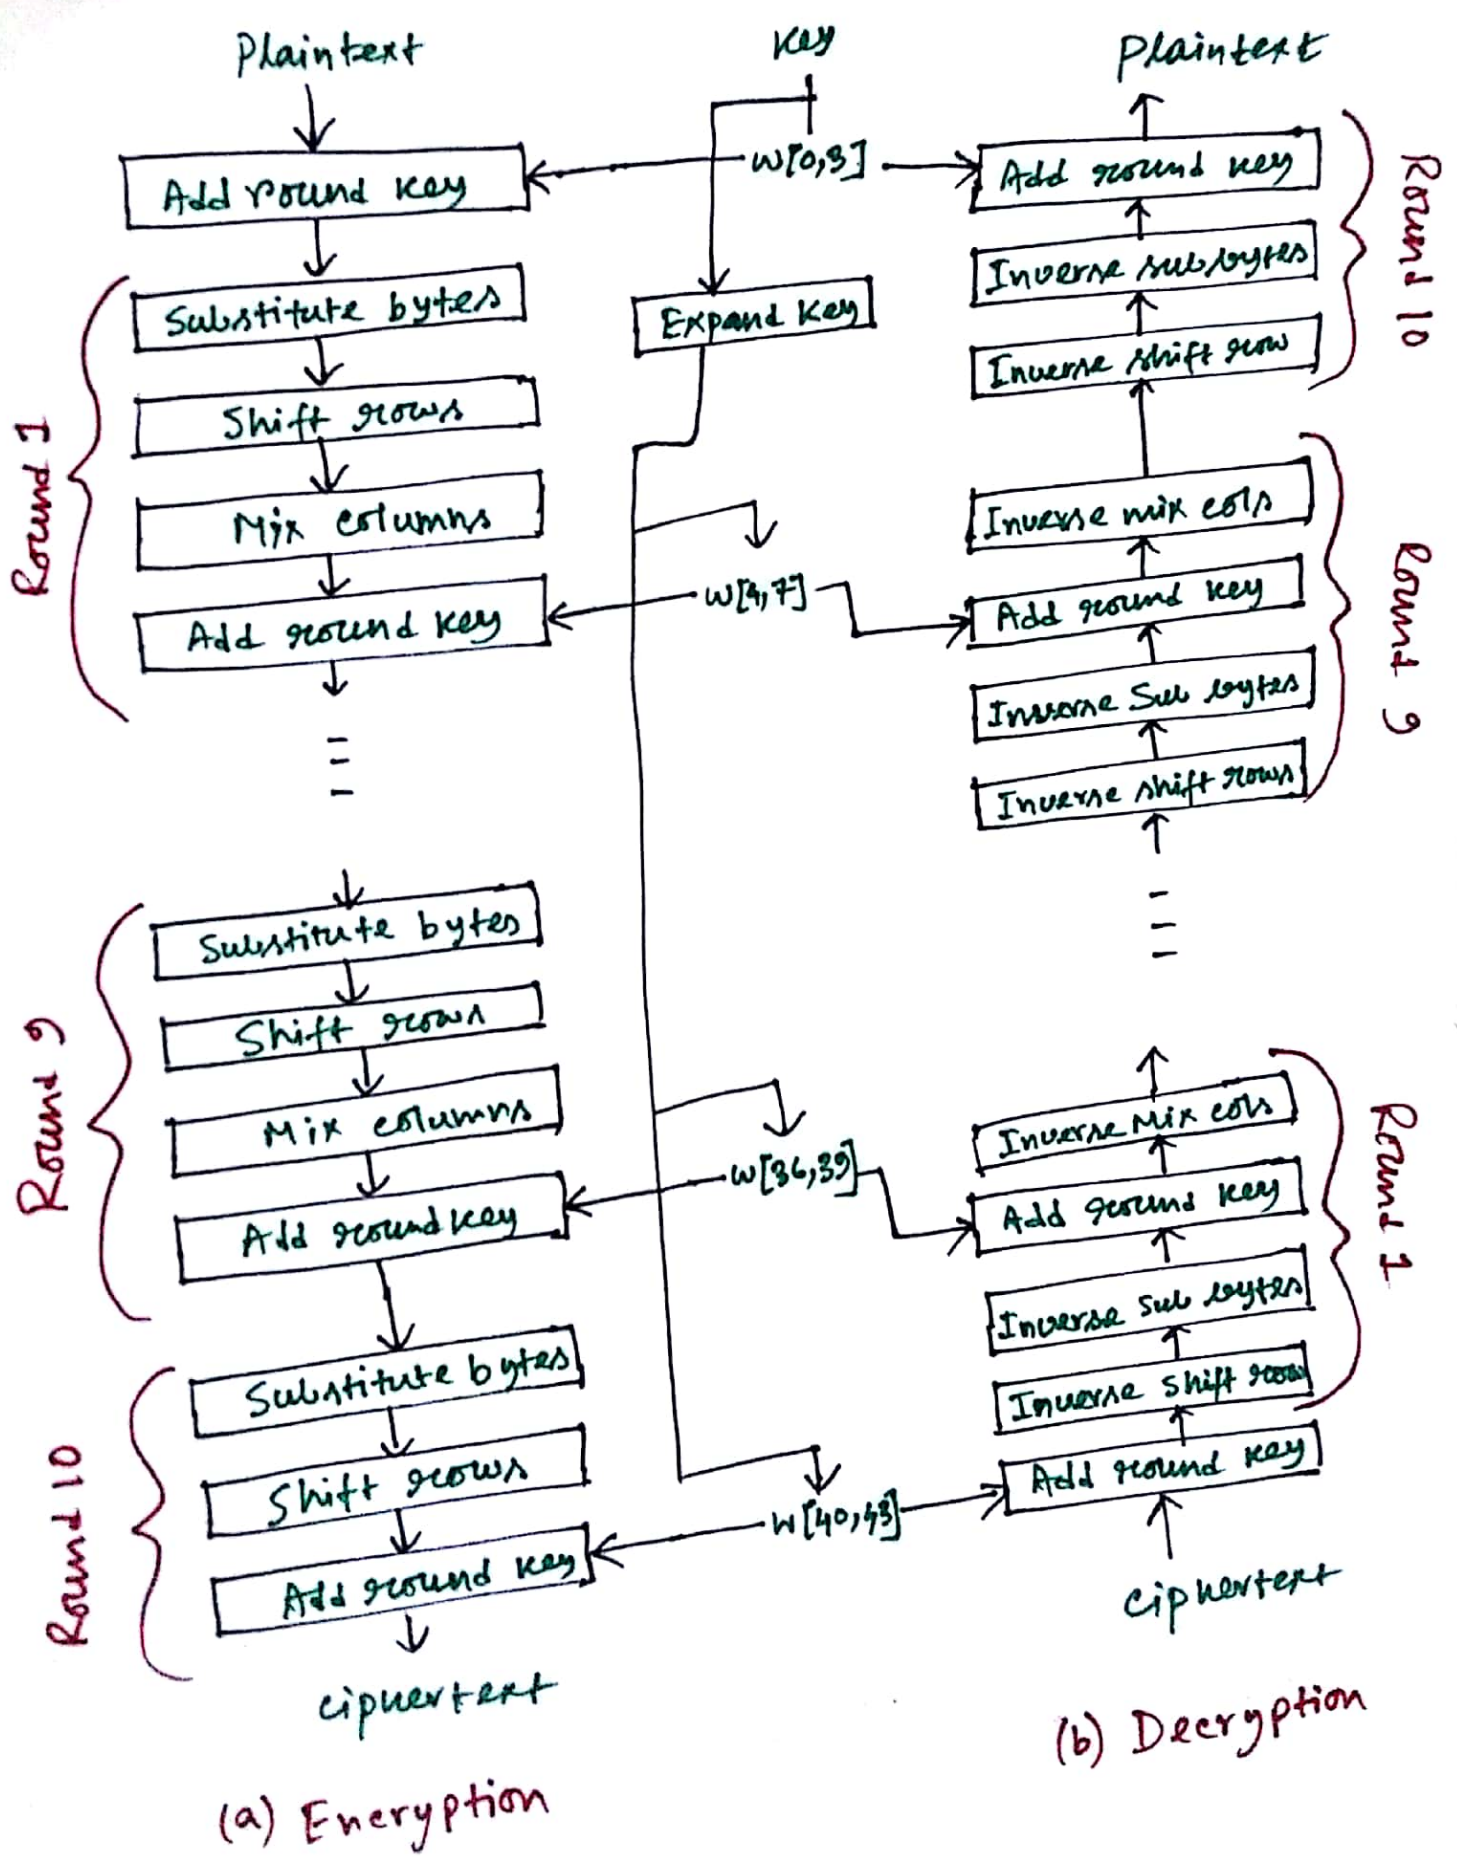 Plaintext
Add round key
Substitute bytes
Shift rows
Mix columns
Add round key
Round 1
Substitute bytes
Shift rows
Mix columns
Add round key
Round 9
Substitute bytes
Shift rows
Add round key
Round 10
ciphertext
(a) Encryption
Key
W[0,3]
Expand Key
W[4,7]
W[36,39]
W[40,43]
Plaintext
Add round key
Inverse sub bytes
Inverse shift row
Round 10
Inverse mix cols
Add round key
Inverse Sub bytes
Inverse shift rows
Round 9
Inverse Mix cols
Add round key
Inverse Sub bytes
Inverse shift rows
Round 1
Add round key
ciphertext
(b) Decryption